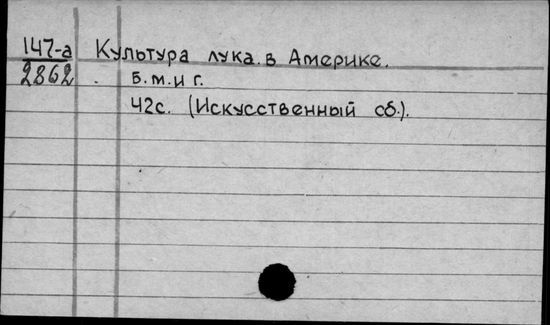 147-а Культура лука в Америке.
2862 Б.м.и г.
42с. (Искусственный сб.).